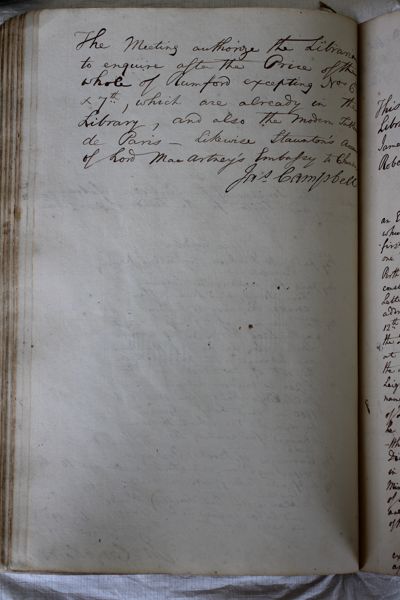 The Meeting authorize the Librarian
to enquire after the Price of the
whole of Rumford excepting Nos 6
& 7th, which are already in the
Library, and also the Modern
de Paris — Likewise Staunton's
of Lord MacArtney's Embassy to
Jas. Campbell
This
Libra
Jame
Robe
an E
whic
first
one
Perth
Lette
12th
the
at
the
Leig
nam
of
he
in
of
of